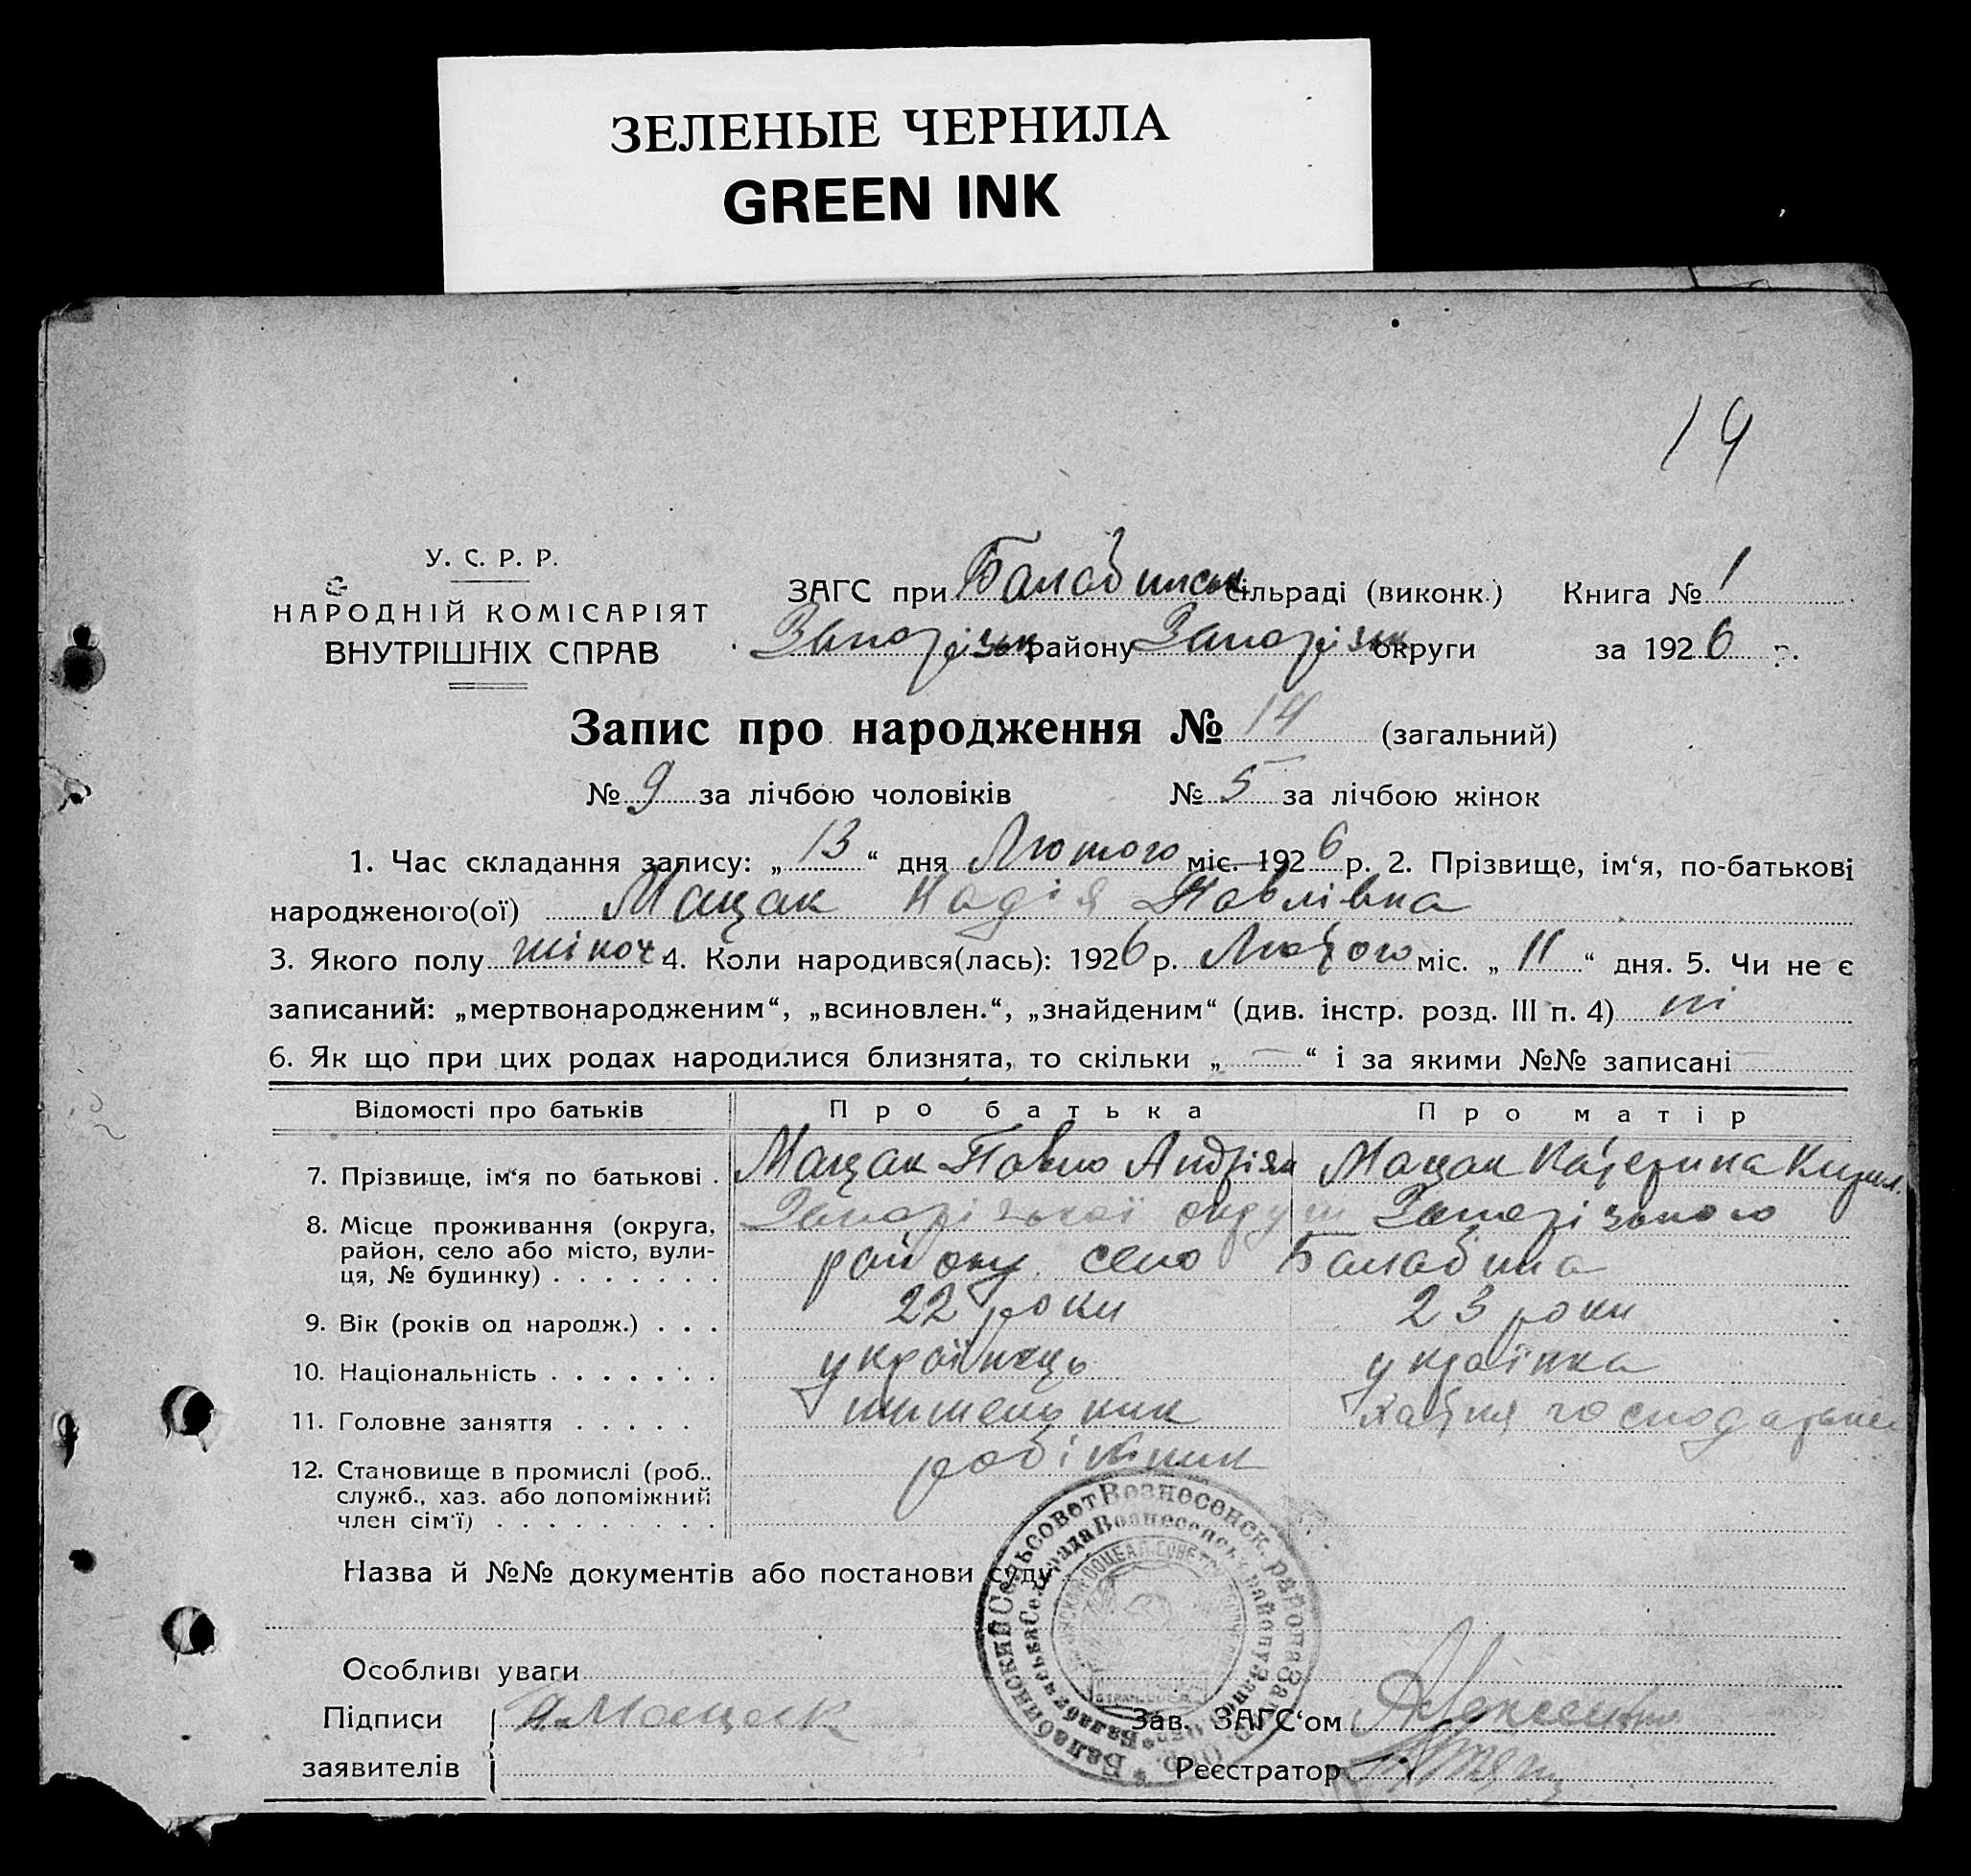 ЗЕЛЕНЫЕ ЧЕРНИЛА
GREEN INK
14
У. С. Р. Р.
НАРОДНІЙ КОМІСАРІЯТ
ВНУТРІШНІХ СПРАВ
ЗАГС при Балабинськ сільраді (виконк.) Книга № 1
Запорізьк району Запорізьк округи за 1926 р.
Запис про народження № 14 (загальний)
№ 9 за лічбою чоловіків № 5 за лічбою жінок
1. Час складання запису: „ 13 “ дня Лютого міс. 1926 р. 2. Прізвище, ім‘я, по-батькові
народженого(ої) Мацак Надія Павлівна
3. Якого полу жіноч 4. Коли народився(лась): 1926 р. Лютого міс. „ 11 “ дня. 5. Чи не є
записаний: „мертвонародженим“, „всиновлен.“, „знайденим“ (див. інстр. розд. III п. 4) ні
6. Як що при цих родах народилися близнята, то скільки „ — “ і за якими №№ записані —
Відомості про батьків Про батька Про матір
7. Прізвище, ім‘я по батькові . Мацак Павло Андріян Мацак Катерина Кирил.
8. Місце проживання (округа, Запорізької округи Запорізького
район, село або місто, вули- району село Балабина
ця, № будинку) . . . . . . .
9. Вік (років од народж.) . . . 22 роки 23 роки
10. Національність . . . . . . . українець українка
11. Головне заняття . . . . . хатня господарка
12. Становище в промислі (роб., робітник
служб., хаз. або допоміжний
член сім‘ї) . . . . . . . . .
Назва й №№ документів або постанови суду
Балабинский Сельсовет Вознесенск. района Запор. Окр.
Особливі уваги
Підписи П. Мацак Зав. ЗАГС‘ом
заявителів Реєстратор